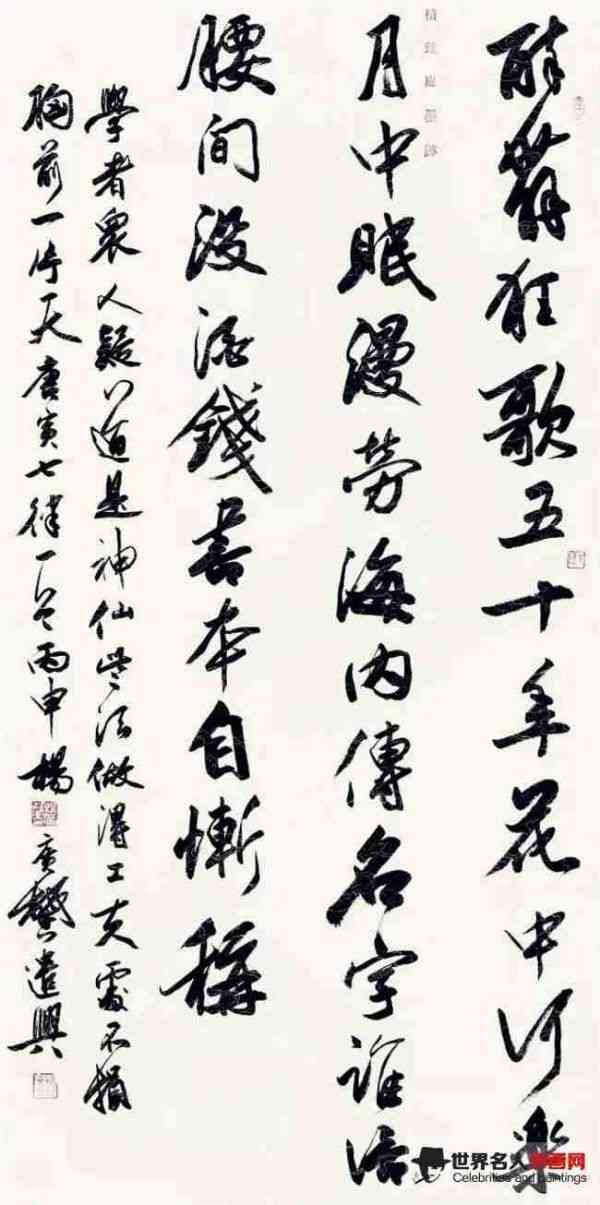 醉舞狂歌五十年花中行樂
月中眠漫勞海内傳名字誰信
腰間沒酒錢書本自慚稱
學者衆人疑道是神仙些須做得工夫處不損
胸前一片天唐寅七律一首丙申楊廣馨遣興
世界名人书画网
Celebrities and paintings